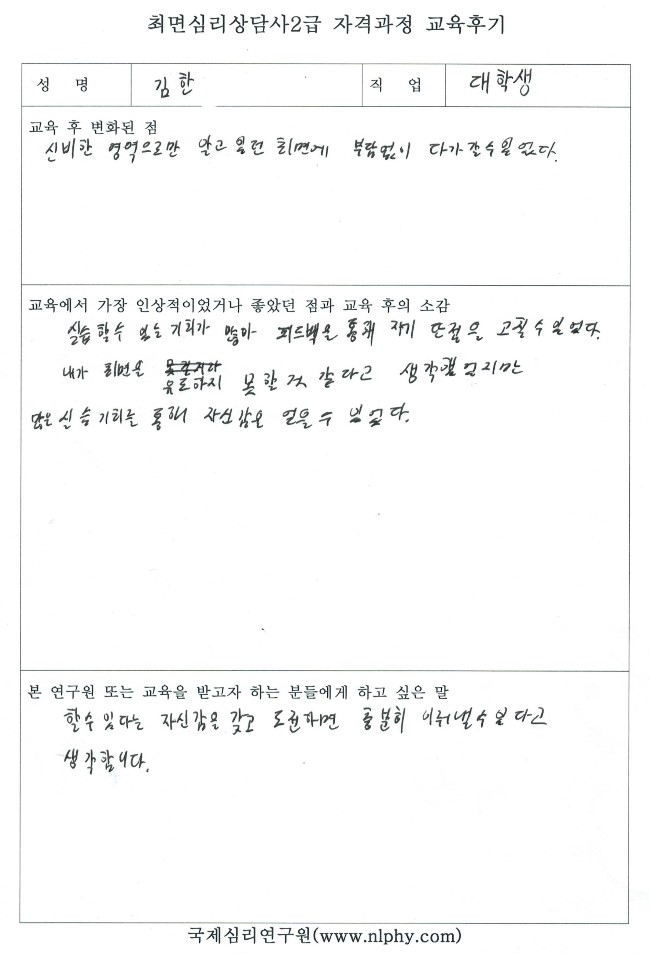 최면심리상담사2급 자격과정 교육후기
성 명 김한 직 업 대학생
교육 후 변화된 점
신비한 영역으로만 알고 있던 최면에 부담없이 다가갈수있었다.
교육에서 가장 인상적이었거나 좋았던 점과 교육 후의 소감
실습할수 있는 기회가 많아 피드백을 통해 자기 단점을 고칠수있었다.
내가 최면을 유도하지 못할것 같다고 생각했었지만
많은 실습기회를 통해 자신감을 얻을수 있었다.
본 연구원 또는 교육을 받고자 하는 분들에게 하고 싶은 말
할수있다는 자신감을 갖고 도전하면 충분히 이뤄낼수있다고
생각합니다.
국제심리연구원(www.nlphy.com)